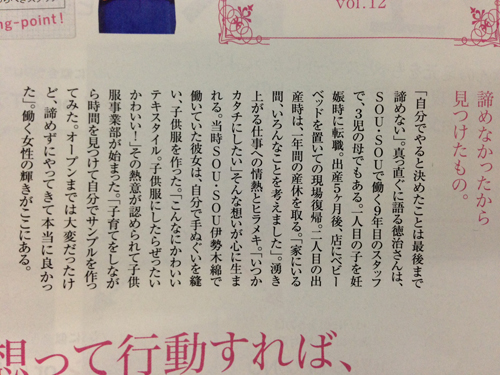 ng-point!
vol.12
諦めなかったから
見つけたもの。
「自分でやると決めたことは最後まで
諦めない」。真っ直ぐに語る徳治さんは、
SOU・SOUで働く9年目のスタッフ
で、3児の母でもある。一人目の子を妊
娠時に転職。出産5ヶ月後、店にベビー
ベッドを置いての現場復帰。二人目の出
産時は、一年間の産休を取る。「家にいる
間、いろんなことを考えました」。湧き
上がる仕事への情熱とヒラメキ。「いつか
カタチにしたい」そんな想いが心に生ま
れる。当時SOU・SOU伊勢木綿で
働いていた彼女は、自分で手ぬぐいを縫
い、子供服を作った。「こんなにかわいい
テキスタイル。子供服にしたらぜったい
かわいい!」その熱意が認められて子供
服事業部が始まった。「子育てをしなが
ら時間を見つけて自分でサンプルを作っ
てみた。オープンまでは大変だったけ
ど、諦めずにやってきて本当に良かっ
た」。働く女性の輝きがここにある。
想って行動すれば、